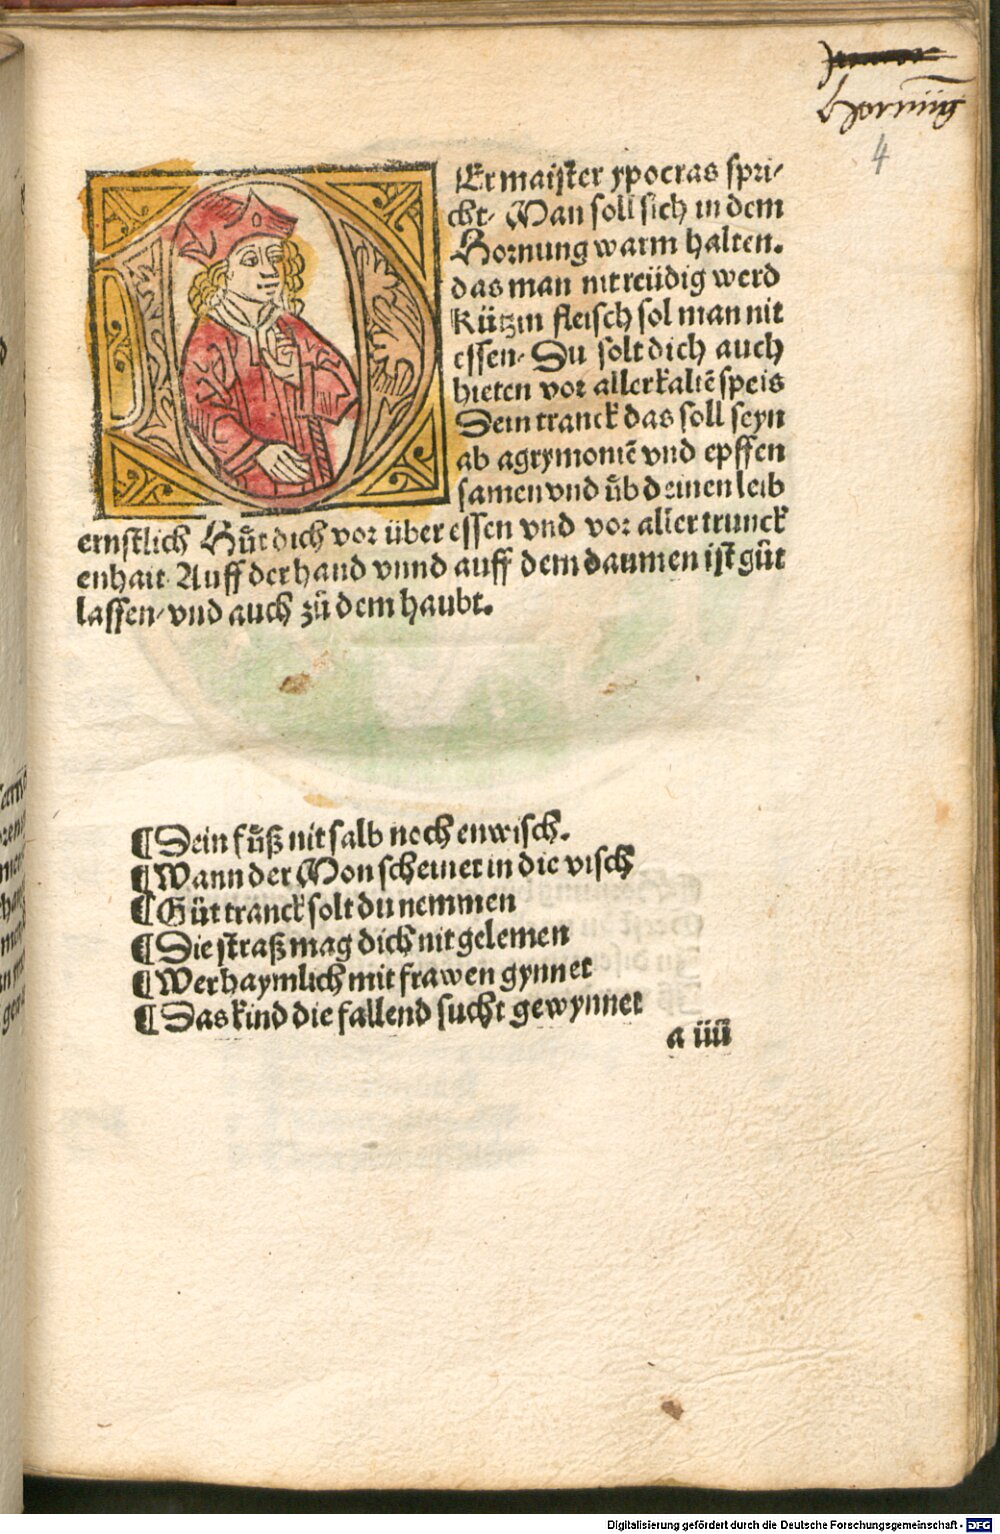 Hornūg
4
Er maister ypocras spri⸗
cht⸗ Man soll sich in dem
Hornung warm halten.
das man nit reüdig werd
Kützin fleisch sol man nit
essen⸗ Du solt dich auch
hieten vor aller kaltē speis
Dein tranck das soll seyn
ab agrymoniē vnd epffen
samen vnd üb deinen leib
ernstlich Hüt dich vor über essen vnd vor aller trunck
enhait Auff der hand vnnd auff dem daumen ist gůt
lassen⸗ vnd auch zů dem haubt.
¶ Dein fůß nit salb noch enwisch.
¶ Wann der Mon scheinet in die visch
¶ Gůt tranck solt du nemmen
¶ Die straß mag dich nit gelemen
¶ Wer haymlich mit frawen gynnet
¶ Das kind die fallend sucht gewynnet
a iiii
Digitalisierung gefördert durch die Deutsche Forschungsgemeinschaft - DFG